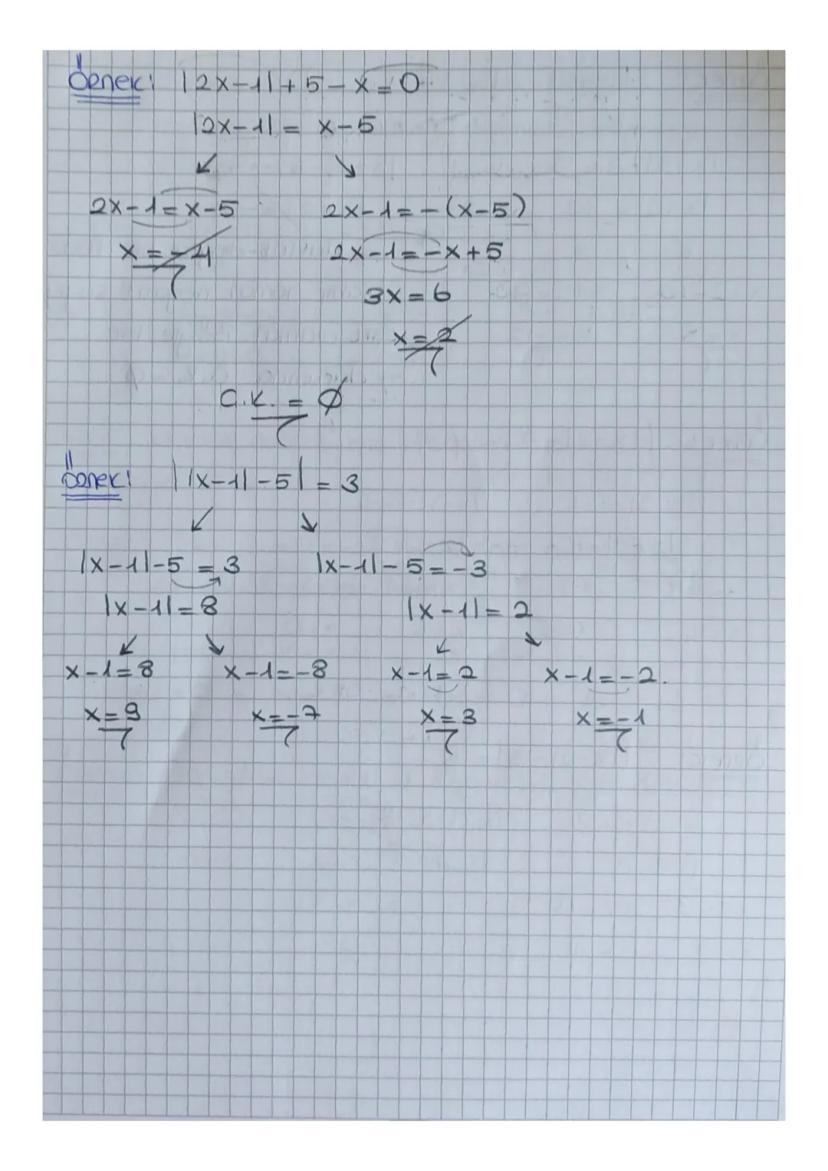 Örnek: |2x-1| + 5 - x = 0
|2x-1| = x-5
↙ ↘
2x-1 = x-5 2x-1 = -(x-5)
x = -4 2x-1 = -x+5
3x = 6
x = 2
Ç.K. = ∅
Örnek: ||x-1| -5| = 3
↙ ↘
|x-1| -5 = 3 |x-1| -5 = -3
|x-1| = 8 |x-1| = 2
↙ ↘ ↙ ↘
x-1=8 x-1=-8 x-1=2 x-1=-2.
x=9 x=-7 x=3 x=-1